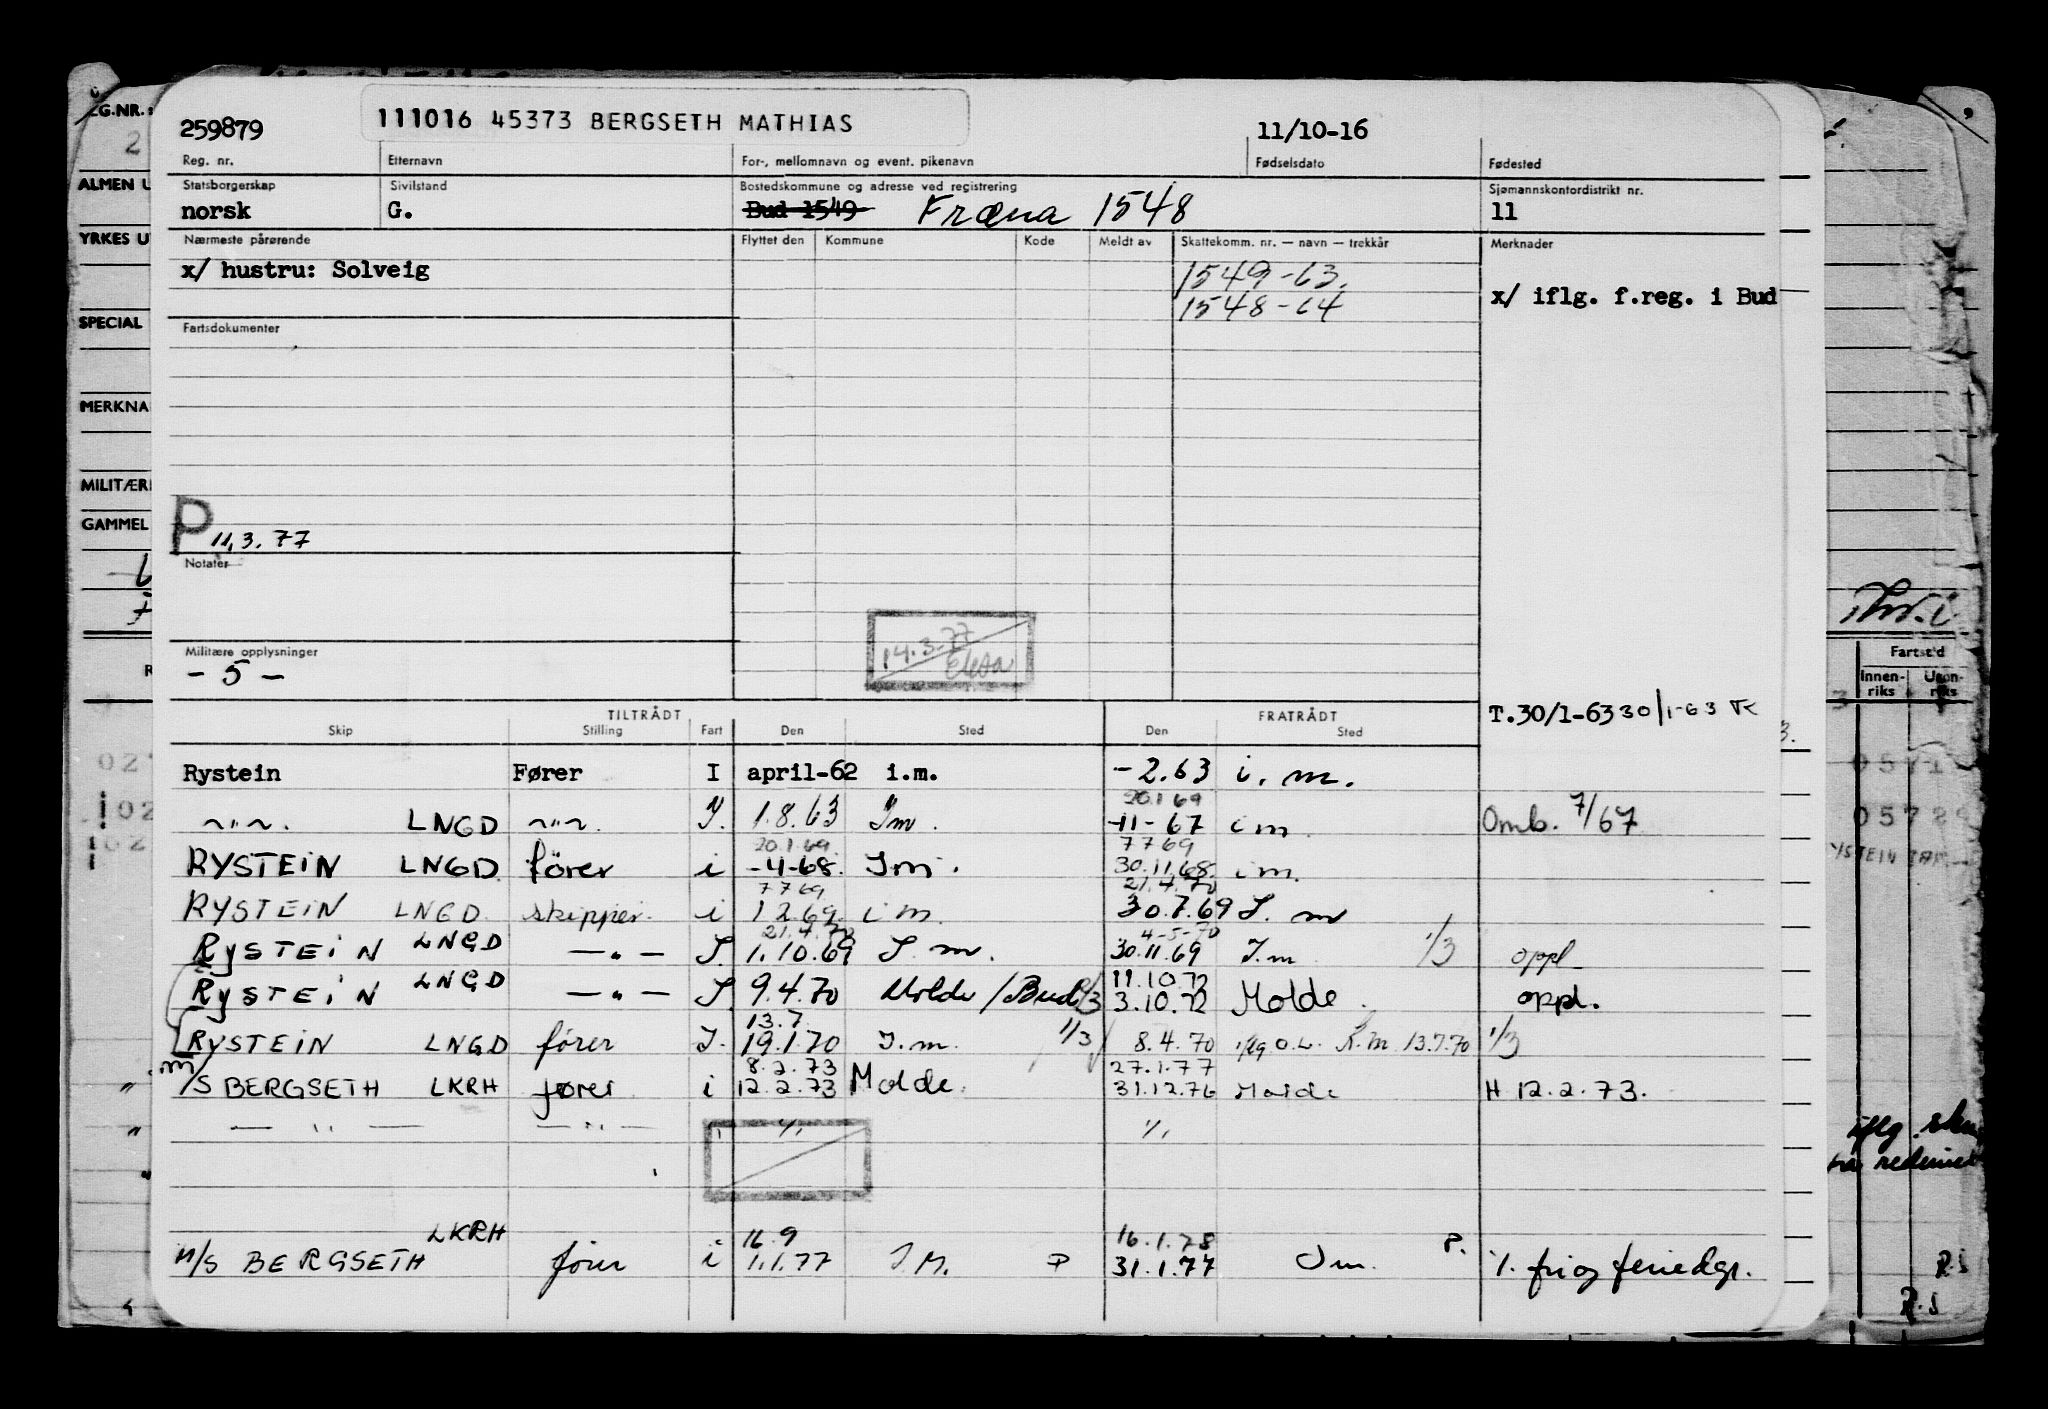 259879 111016 45373 BERGSETH MATHIAS 11/10-16
Reg. nr. Etternavn For-, mellomnavn og event. pikenavn Fødselsdato Fødested
Statsborgerskap Sivilstand Bostedskommune og adresse ved registrering Sjømannskontordistrikt nr.
norsk G. Bud 1549 Fræna 1548 11
Nærmeste pårørende Flyttet den Kommune Kode Meldt av Skattekomm. nr. — navn — trekkår Merknader
x/ hustru: Solveig 1549-63.
1548-64 x/ iflg. f.reg. i Bud
Fartsdokumenter
P 11.3.77
Notater
14.3.77
Militære opplysninger
- 5 -
TILTRÅDT FRATRÅDT T.30/1-63 30/1-63
Skip Stilling Fart Den Sted Den Sted
Rystein Fører I april-62 i.m. -2.63 i.m.
20.1 69
~"~. LNGD ~"~. I. 1.8.63 Im. -11-67 im Omb. 7/67
20.1.69 7 7 69
RYSTEIN LNGD fører i -4-68. Im. 30.11.68. im.
7 7 69 21.4.70
RYSTEIN LNGD skipper i 1 2 69 im. 30.7.69 I.m
21.4.70 4-5-70
RYSTEIN LNGD —"— I. 1.10.69 I.m. 30.11.69 I.m 1/3 oppl
11.10.72
RYSTEIN LNGD —"— I. 9.4.70 Molde/Bud 3.10.72 Molde. oppl.
13.7.
RYSTEIN LNGD fører I. 19.1.70 I.m. 1/3 8.4.70 13.7.70 1/3
8.2.73 27.1.77
m/S BERGSETH LKRH fører i 12.2.73 Molde. 31.12.76 Molde H 12.2.73.
— " — — " —
LKRH 16.9 16.1.78
M/S BERGSETH fører i 1.1.77 I.M. P 31.1.77 Im. P. fri og feriedgr.
EG.NR.
ALMEN U
YRKES U
SPECIAL
MERKNA
MILITÆR
GAMMEL
Fartstid
Innen-
riks
iflg.
R.S
R.S